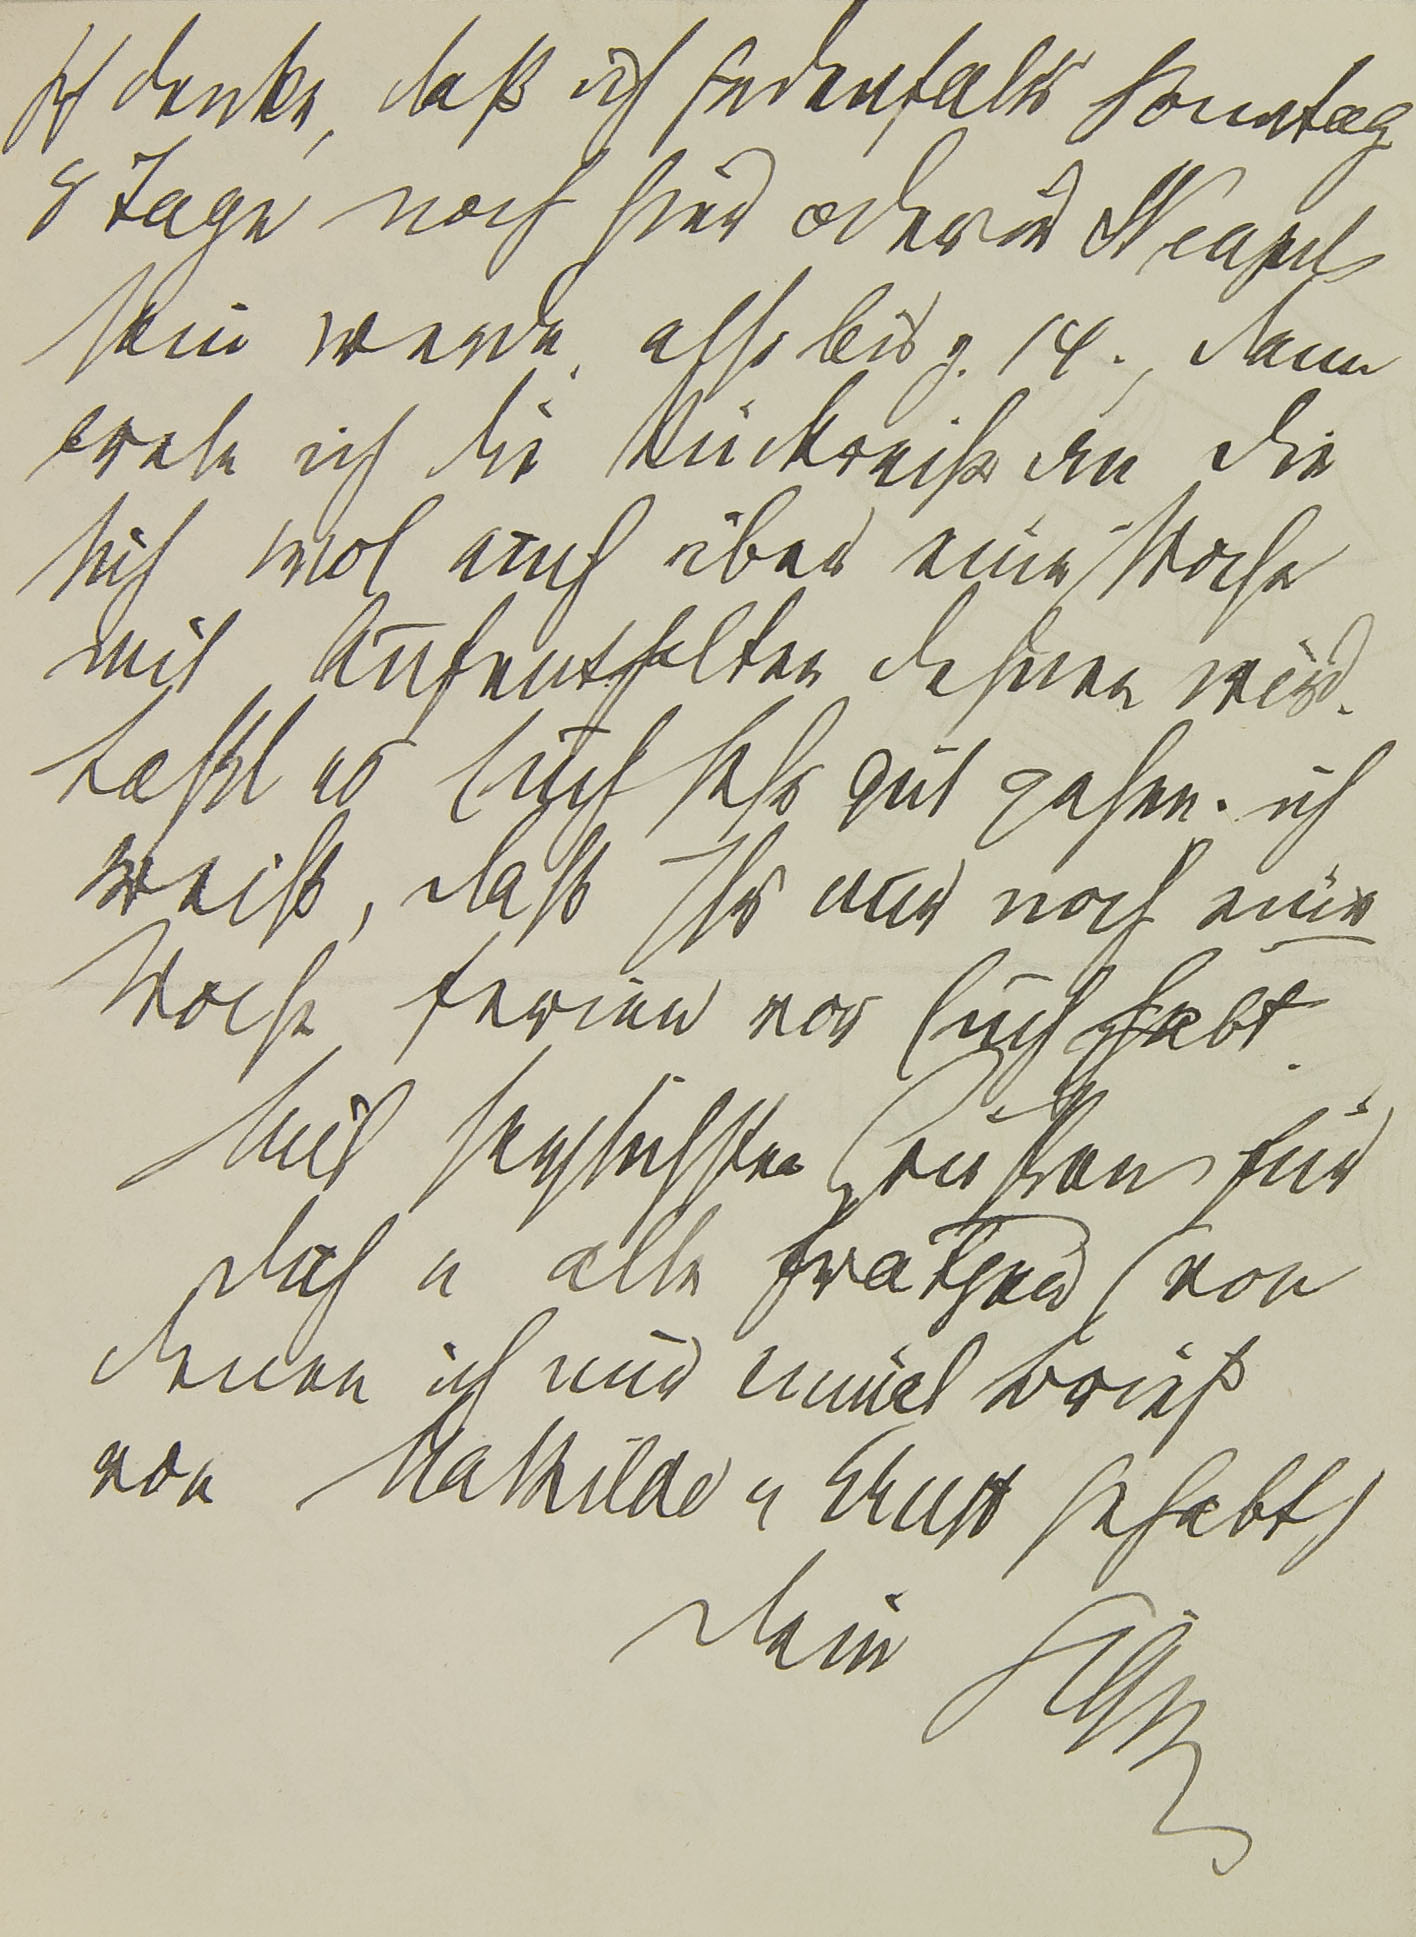 Ich denke, daß ich jedenfalls Sonntag
8 Tage noch hier oder in Neapel
sein werde, also bis z. 14., dann
trete ich die Rückreise an die
sich wol auch über eine Woche
mit Aufenthalten dehnen wird.
Laßt es Euch sehr gut gehen. ich
weiß, daß Ihr nur noch eine
Woche Ferien vor Euch habt.
Mit herzlichsten Grüßen für
Dich u alle (von
denen ich nur einmal
von Mathilde u Ernst gehabt)
Dein